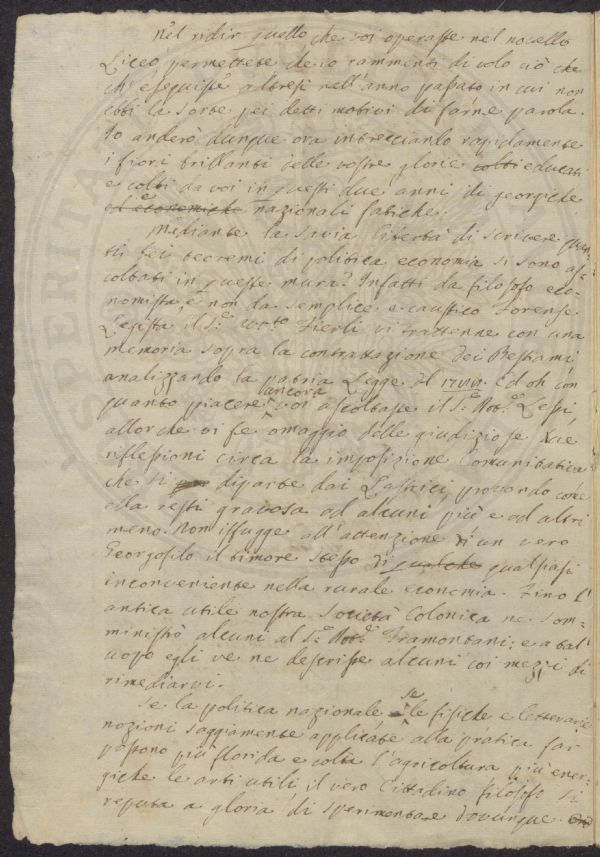 Nel ridir quello che voi operaste nel novello
Liceo permettete che io rammenti di volo ciò che
si eseguisse altresì nell'anno passato in cui non
ebbi la sorte pei detti motivi di farne parola.
Io anderò dunque ora intrecciando rapidamente
i fiori brillanti delle vostre glorie colti educati
e colti da voi in questi due anni di georgiche
ed economiche nazionali fatiche.
Mediante la savia libertà di scrivere quan-
ti bei teoremi di politica economia si sono as-
coltati in queste mura? Infatti da filosofo eco-
nomista, e non da semplice e caustico Forense
Legista il Sr. Fierli vi trattenne con una
memoria sopra la contrattazione dei Bestiami
analizzando la patria Legge del Ed oh con
quanto piacere ancora voi ascoltaste il Sr. Dott. Lessi,
allor che vi fe omaggio delle giudiziose sue
riflessioni circa la imposizione Comunitativa
che si diparte dai Lastrici provando com'
ella resti gravosa ad alcuni più e ad altri
meno. Non isfugge all'attenzione d'un vero
Georgofilo il timore stesso di qualche qualsiasi
inconveniente nella rurale economia. Fino l'
antica utile nostra Società Colonica ne som-
ministrò alcuni al Sr. Dott. Tramontani; e a tal'
uopo egli ve ne descrisse alcuni coi mezzi di
rimediarvi.
Se la politica nazionale, se le fisiche e letterarie
nozioni saggiamente applicate alla pratica far
possono più florida e colta l'agricoltura più ener-
giche le arti utili, il vero Cittadino filosofo si
reputa a gloria di sperimentare dovunque.